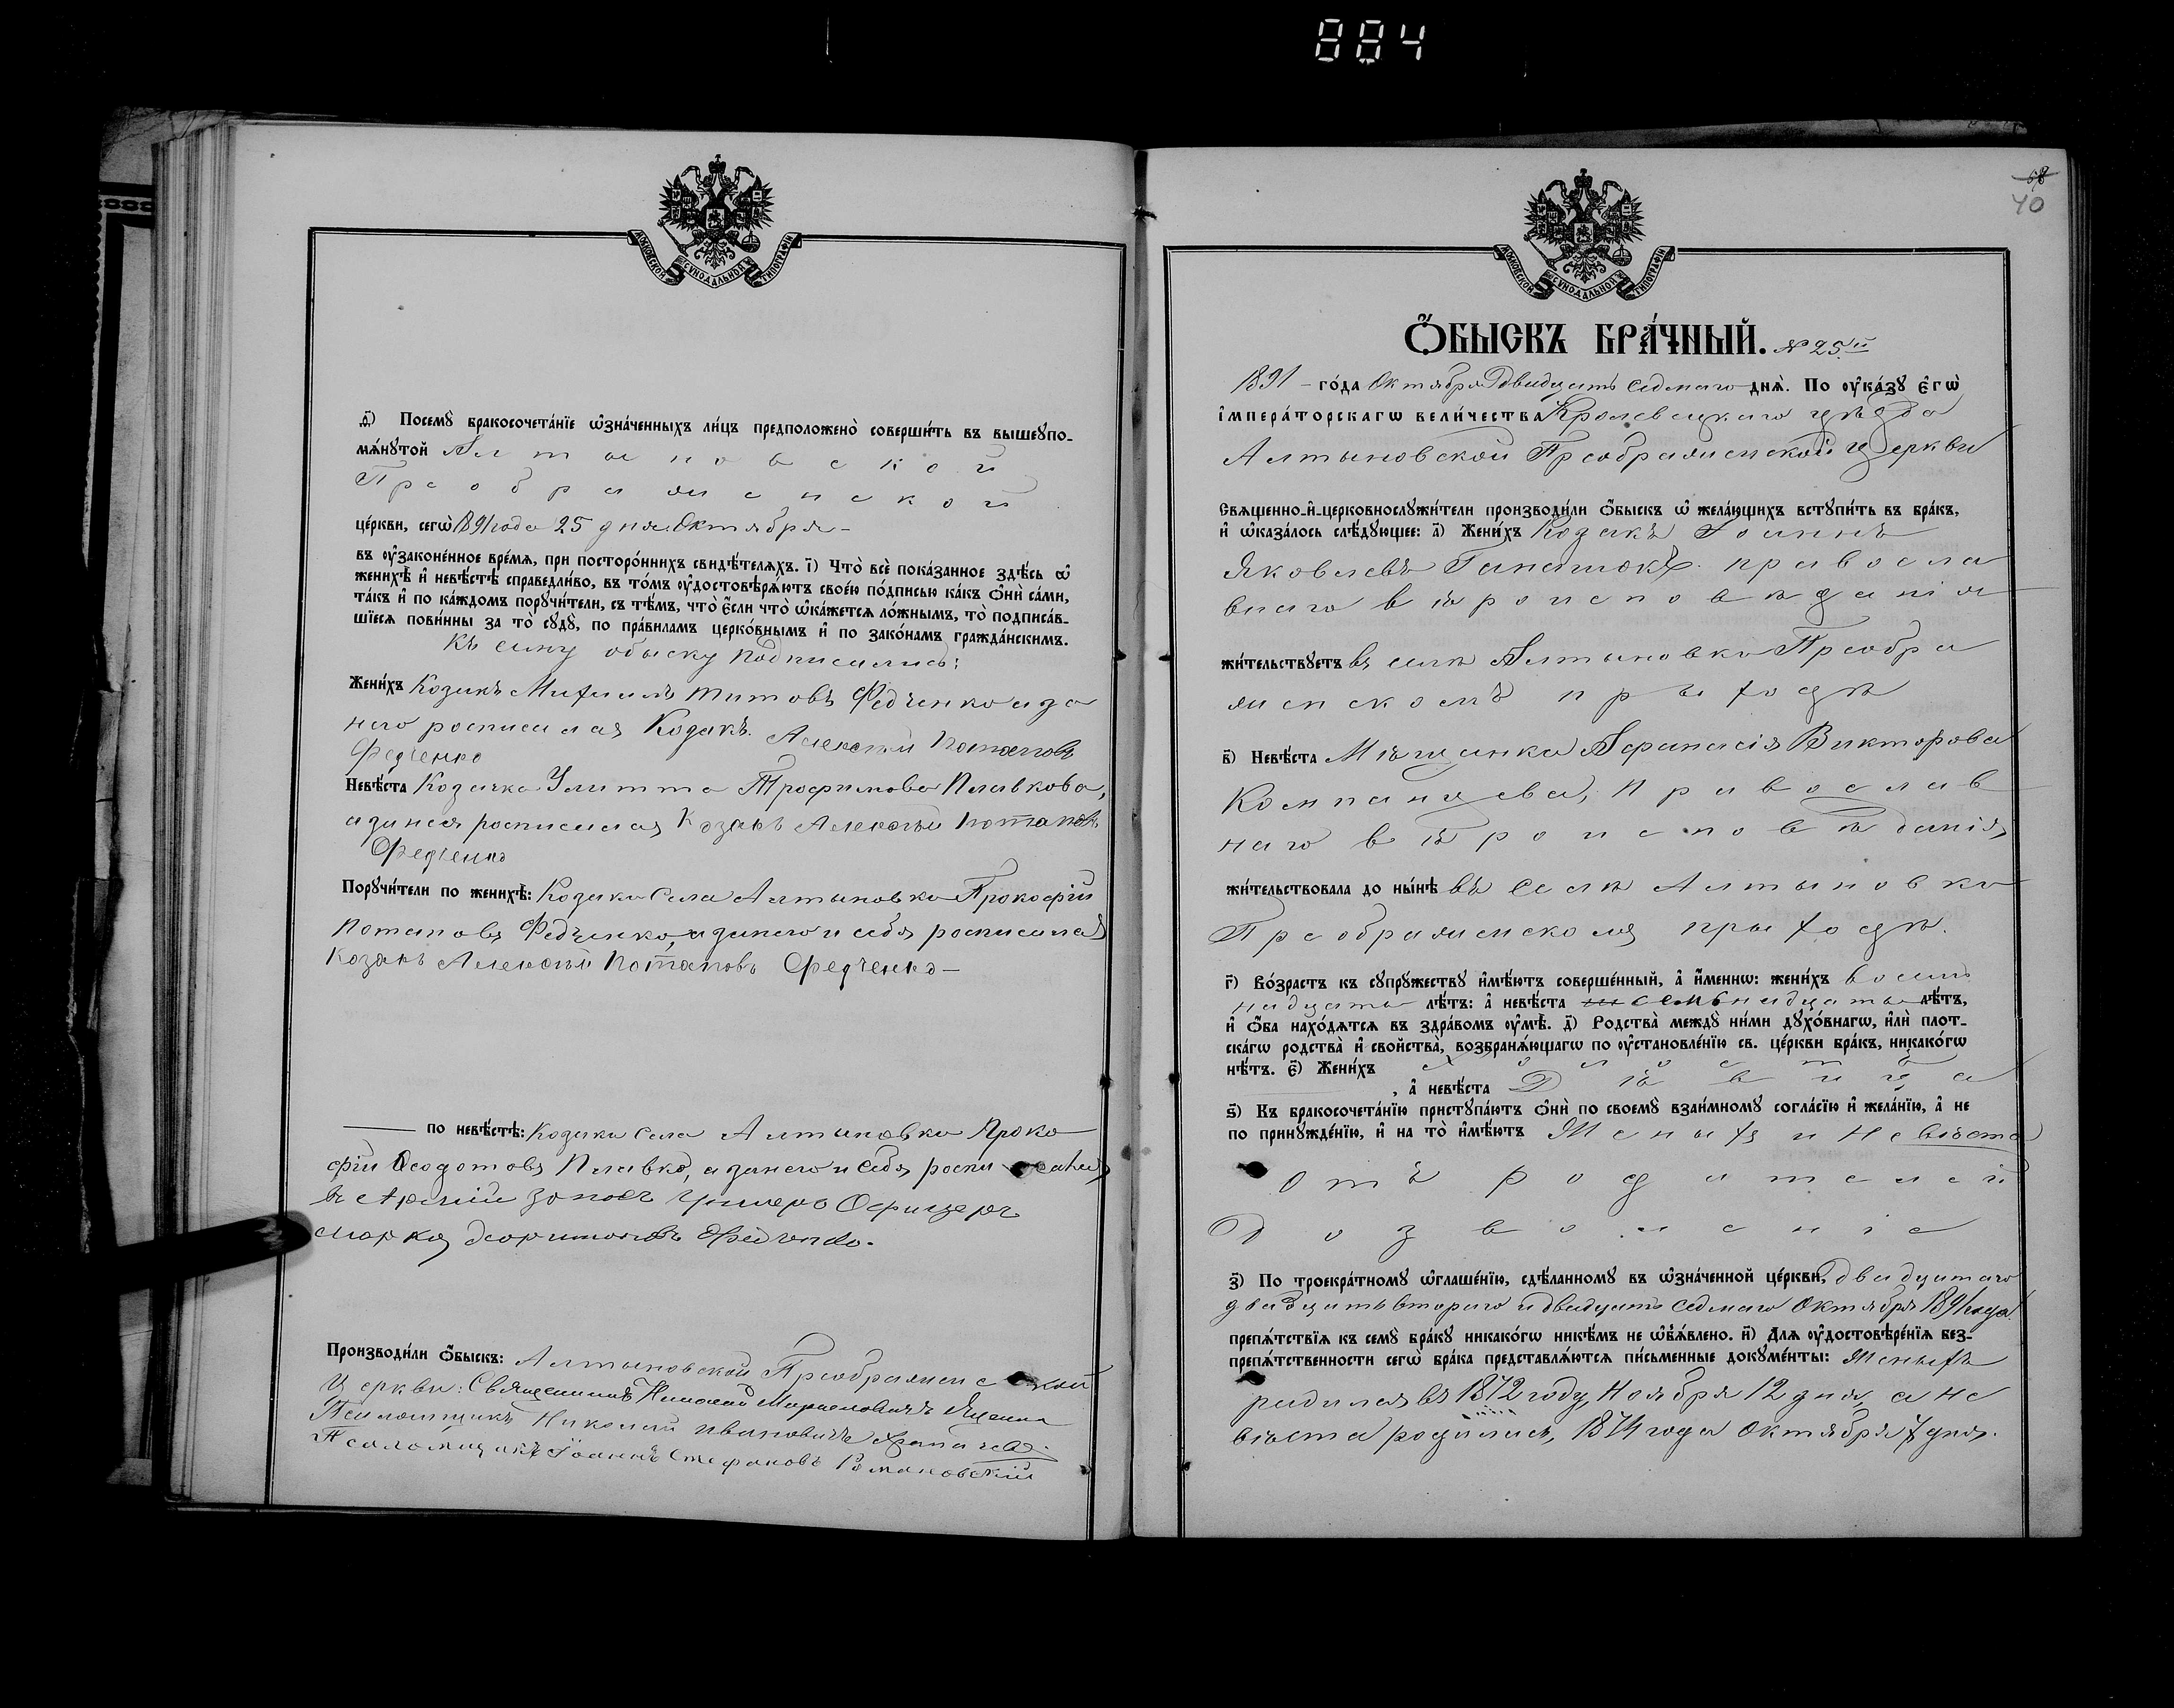 884
МОСКОВСКОЙ СѴНОДАЛЬНОЙ ТИПОГРАФІИ
д҃) Посемꙋ̀ бракосочета́нїе ѡ҆зна́ченныхъ ли́цъ предположено̀ соверши́ть въ вышеꙋпо-
мѧ́нꙋтой Алтыновской
Преображенской
це́ркви, сегѡ̀ 1891 года 25 дня Октября
въ ᲂу҆зако́ненное вре́мѧ, при посторо́ннихъ свидѣ́телѧхъ. і҃) Что̀ всѐ пока́занное здѣ́сь ѡ҆
женихѣ̀ и҆ невѣ́стѣ справедли́во, въ то́мъ ᲂу҆достовѣрѧ́ютъ свое́ю по́дписью ка́къ ѻ҆нѝ са́ми,
та́къ и҆ по ка́ждомъ порꙋчи́тели, съ тѣ́мъ, что̀ є҆́сли что̀ ѡ҆ка́жетсѧ ло́жнымъ, то̀ подписа́в-
шїесѧ пови́нны за то̀ сꙋдꙋ̀, по пра́виламъ церко́внымъ и҆ по зако́намъ гражда́нскимъ.
Къ сему обыску подписались:
Жени́хъ Козакъ Михаилъ Титовъ Федченко а за
него росписался Козакъ Алексѣй Потаповъ
Федченко
Невѣ́ста Козачка Улитта Трофимова Плавкова,
а за нея росписался Козакъ Алексѣй Потаповъ
Федченко
Порꙋчи́тели по женихѣ̀: Козаки Села Алтыновки Прокофій
Потаповъ Федченко, а за него и себя росписался
Козакъ Алексѣй Потаповъ Федченко
по невѣ́стѣ: Козаки Села Алтыновки Проко
фій Феодотовъ Плавко, а за него и себя роспи сался
Федченко.
Производи́ли ѻ҆́быскъ: Алтыновской Преображенской
Церкви: Священникъ Николай
Псаломщикъ Николай Ивановичъ
Псаломщикъ Іоаннъ Стефановъ Романовскій
68
70
МОСКОВСКОЙ СѴНОДАЛЬНОЙ ТИПОГРАФІИ
Ѻ҆́БЫСКЪ БРА́ЧНЫЙ. № 25й
1891 – го́да Октября Двадцать седмаго днѧ̀. По ᲂу҆ка́зꙋ є҆гѡ̀
і҆мпера́торскагѡ вели́чества Кролевецкаго уѣзда
Алтыновской Преображенской Церкви
Свѧщенно-и҆-церковнослꙋжи́тели производи́ли ѻ҆́быскъ ѡ҆ жела́ющихъ встꙋпи́ть въ бра́къ,
и҆ ѡ҆каза́лось слѣ́дꙋющее: а҃) Жени́хъ Козакъ Іоаннъ
Яковлевъ православ
наго вѣроисповѣданія
жи́тельствꙋетъ въ селѣ Алтыновкѣ Преобра
женскомъ приходѣ
в҃) Невѣ́ста Мѣщанка Афанасія Викторова
Компанцева, православ
наго вѣроисповѣданія,
жи́тельствовала до ны́нѣ въ Селѣ Алтыновкѣ
Преображенскомъ приходѣ.
г҃) Во́зрастъ къ сꙋпрꙋ́жествꙋ и҆мѣ́ютъ соверше́нный, а҆ и҆́меннѡ: жени́хъ восем
надцать лѣ́тъ: а҆ невѣ́ста семьнадцать лѣ́тъ,
и҆ ѻ҆́ба нахо́дѧтсѧ въ здра́вомъ ᲂу҆мѣ̀. д҃) Родства̀ междꙋ̀ ни́ми дꙋхо́внагѡ, и҆лѝ плот-
ска́гѡ родства̀ и҆ свойства̀, возбранѧ́ющагѡ по ᲂу҆становле́нїю св. це́ркви бра́къ, никако́гѡ
нѣ́тъ. є҃) Жени́хъ холостъ
, а҆ невѣ́ста Дѣвица
ѕ҃) Къ бракосочета́нїю пристꙋпа́ютъ ѻ҆нѝ по своемꙋ̀ взаи́мномꙋ согла́сїю и҆ жела́нїю, а҆ не
по принꙋжде́нїю, и҆ на то̀ и҆мѣ́ютъ Женихъ и Невѣста
отъ родителей
Дозволеніе
з҃) По троекра́тномꙋ ѡ҆глаше́нїю, сдѣ́ланномꙋ въ ѡ҆зна́ченной це́ркви, двадцатаго
двадцать втораго и двадцать седмаго Октября 1891 года
препѧ́тствїѧ къ семꙋ̀ бра́кꙋ никако́гѡ никѣ́мъ не ѡ҆б̾ѧ́влено. и҃) Длѧ ᲂу҆достовѣре́нїѧ без-
препѧ́тственности сегѡ̀ бра́ка представлѧ́ютсѧ пи́сьменные докꙋме́нты: Женихъ
родился въ 1872 году, Ноября 12 дня, а не
вѣста родилась, 1874 года Октября 7 дня.